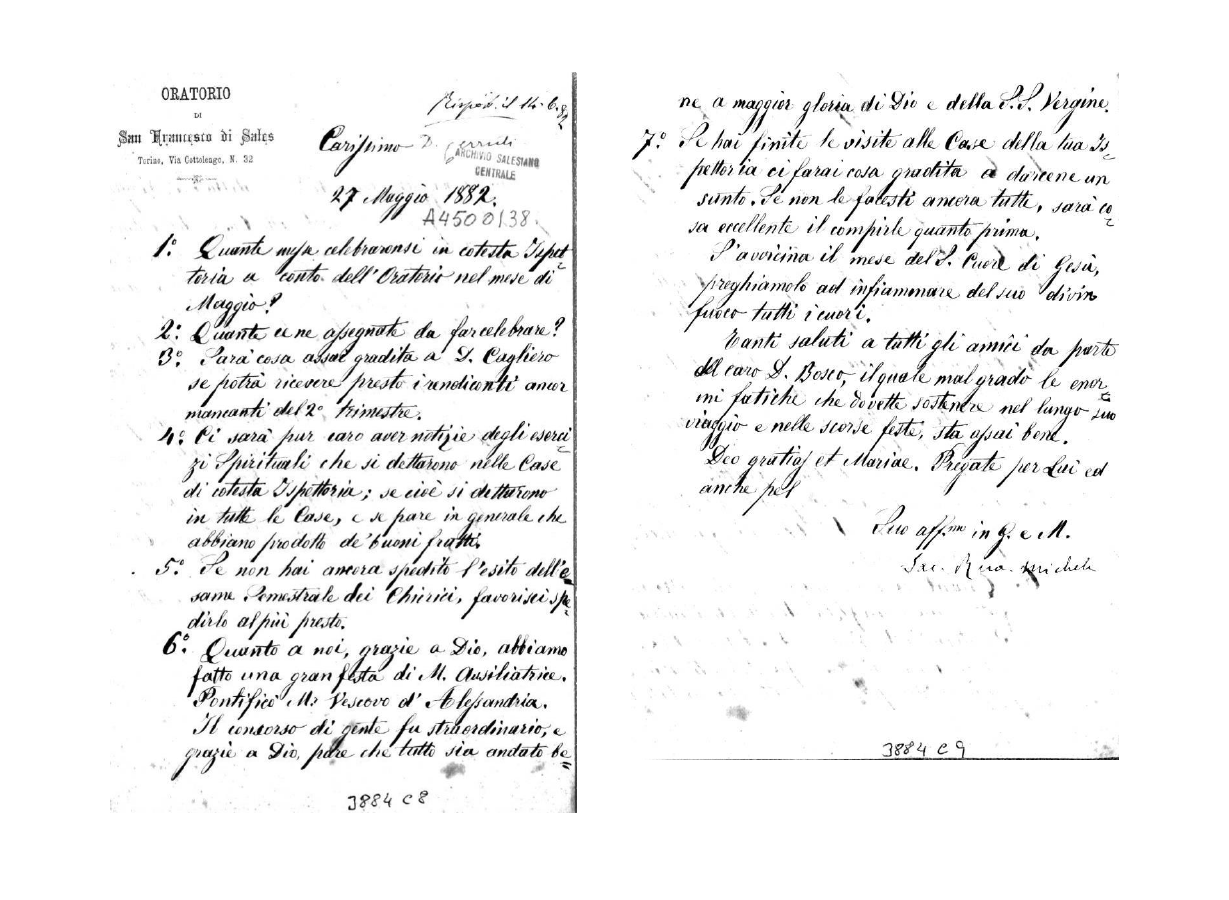 ORATORIO
DI
San Francesco di Sales
Torino, Via Cottolengo, N. 32
Rispos. il 14-6-82
Carissimo D. Cerruti
ARCHIVIO SALESIANO
CENTRALE
27 Maggio 1882.
A4500138
1° Quante messe celebraronsi in cotesta Ispet-
toria a conto dell'Oratorio nel mese di
Maggio?
2° Quante ce ne assegnate da far celebrare?
3° Sarà cosa assai gradita a D. Cagliero
se potrà ricevere presto i rendiconti ancor
mancanti del 2° trimestre.
4° Ci sarà pur caro aver notizie degli eserci-
zi Spirituali che si dettarono nelle Case
di cotesta Ispettoria; se cioè si dettarono
in tutte le Case, e se pare in generale che
abbiano prodotto de' buoni frutti.
5° Se non hai ancora spedito l'esito dell'e-
same Semestrale dei Chierici, favorisci spe-
dirlo al più presto.
6° Quanto a noi, grazie a Dio, abbiamo
fatto una gran festa di M. Ausiliatrice.
Pontificò Mr Vescovo d'Alessandria.
Il concorso di gente fu straordinario, e
grazie a Dio, pare che tutto sia andato be=
3884 C 8
ne a maggior gloria di Dio e della S.S. Vergine.
7° Se hai finite le visite alle Case della tua Is-
pettoria ci farai cosa gradita a darcene un
sunto. Se non le facesti ancora tutte, sarà co-
sa eccellente il compirle quanto prima.
S'avvicina il mese del S. Cuore di Gesù,
preghiamolo ad infiammare del suo divin
fuoco tutti i cuori.
Tanti saluti a tutti gli amici da parte
del caro D. Bosco, il quale mal grado le enor-
mi fatiche che dovette sostenere nel lungo suo
viaggio e nelle scorse feste, sta assai bene.
Deo gratias et Mariae. Pregate per Lui ed
anche pel
Suo aff.mo in G. e M.
Sac. Rua Michele
3884 C 9